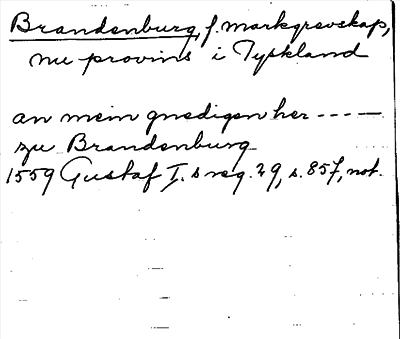 Brandenburg, f. markgrevskap,
nu provins i Tyskland
an mein gnedigen her ----
zu Brandenburg
1559 Gustaf I.s reg. 29, s. 857, not.